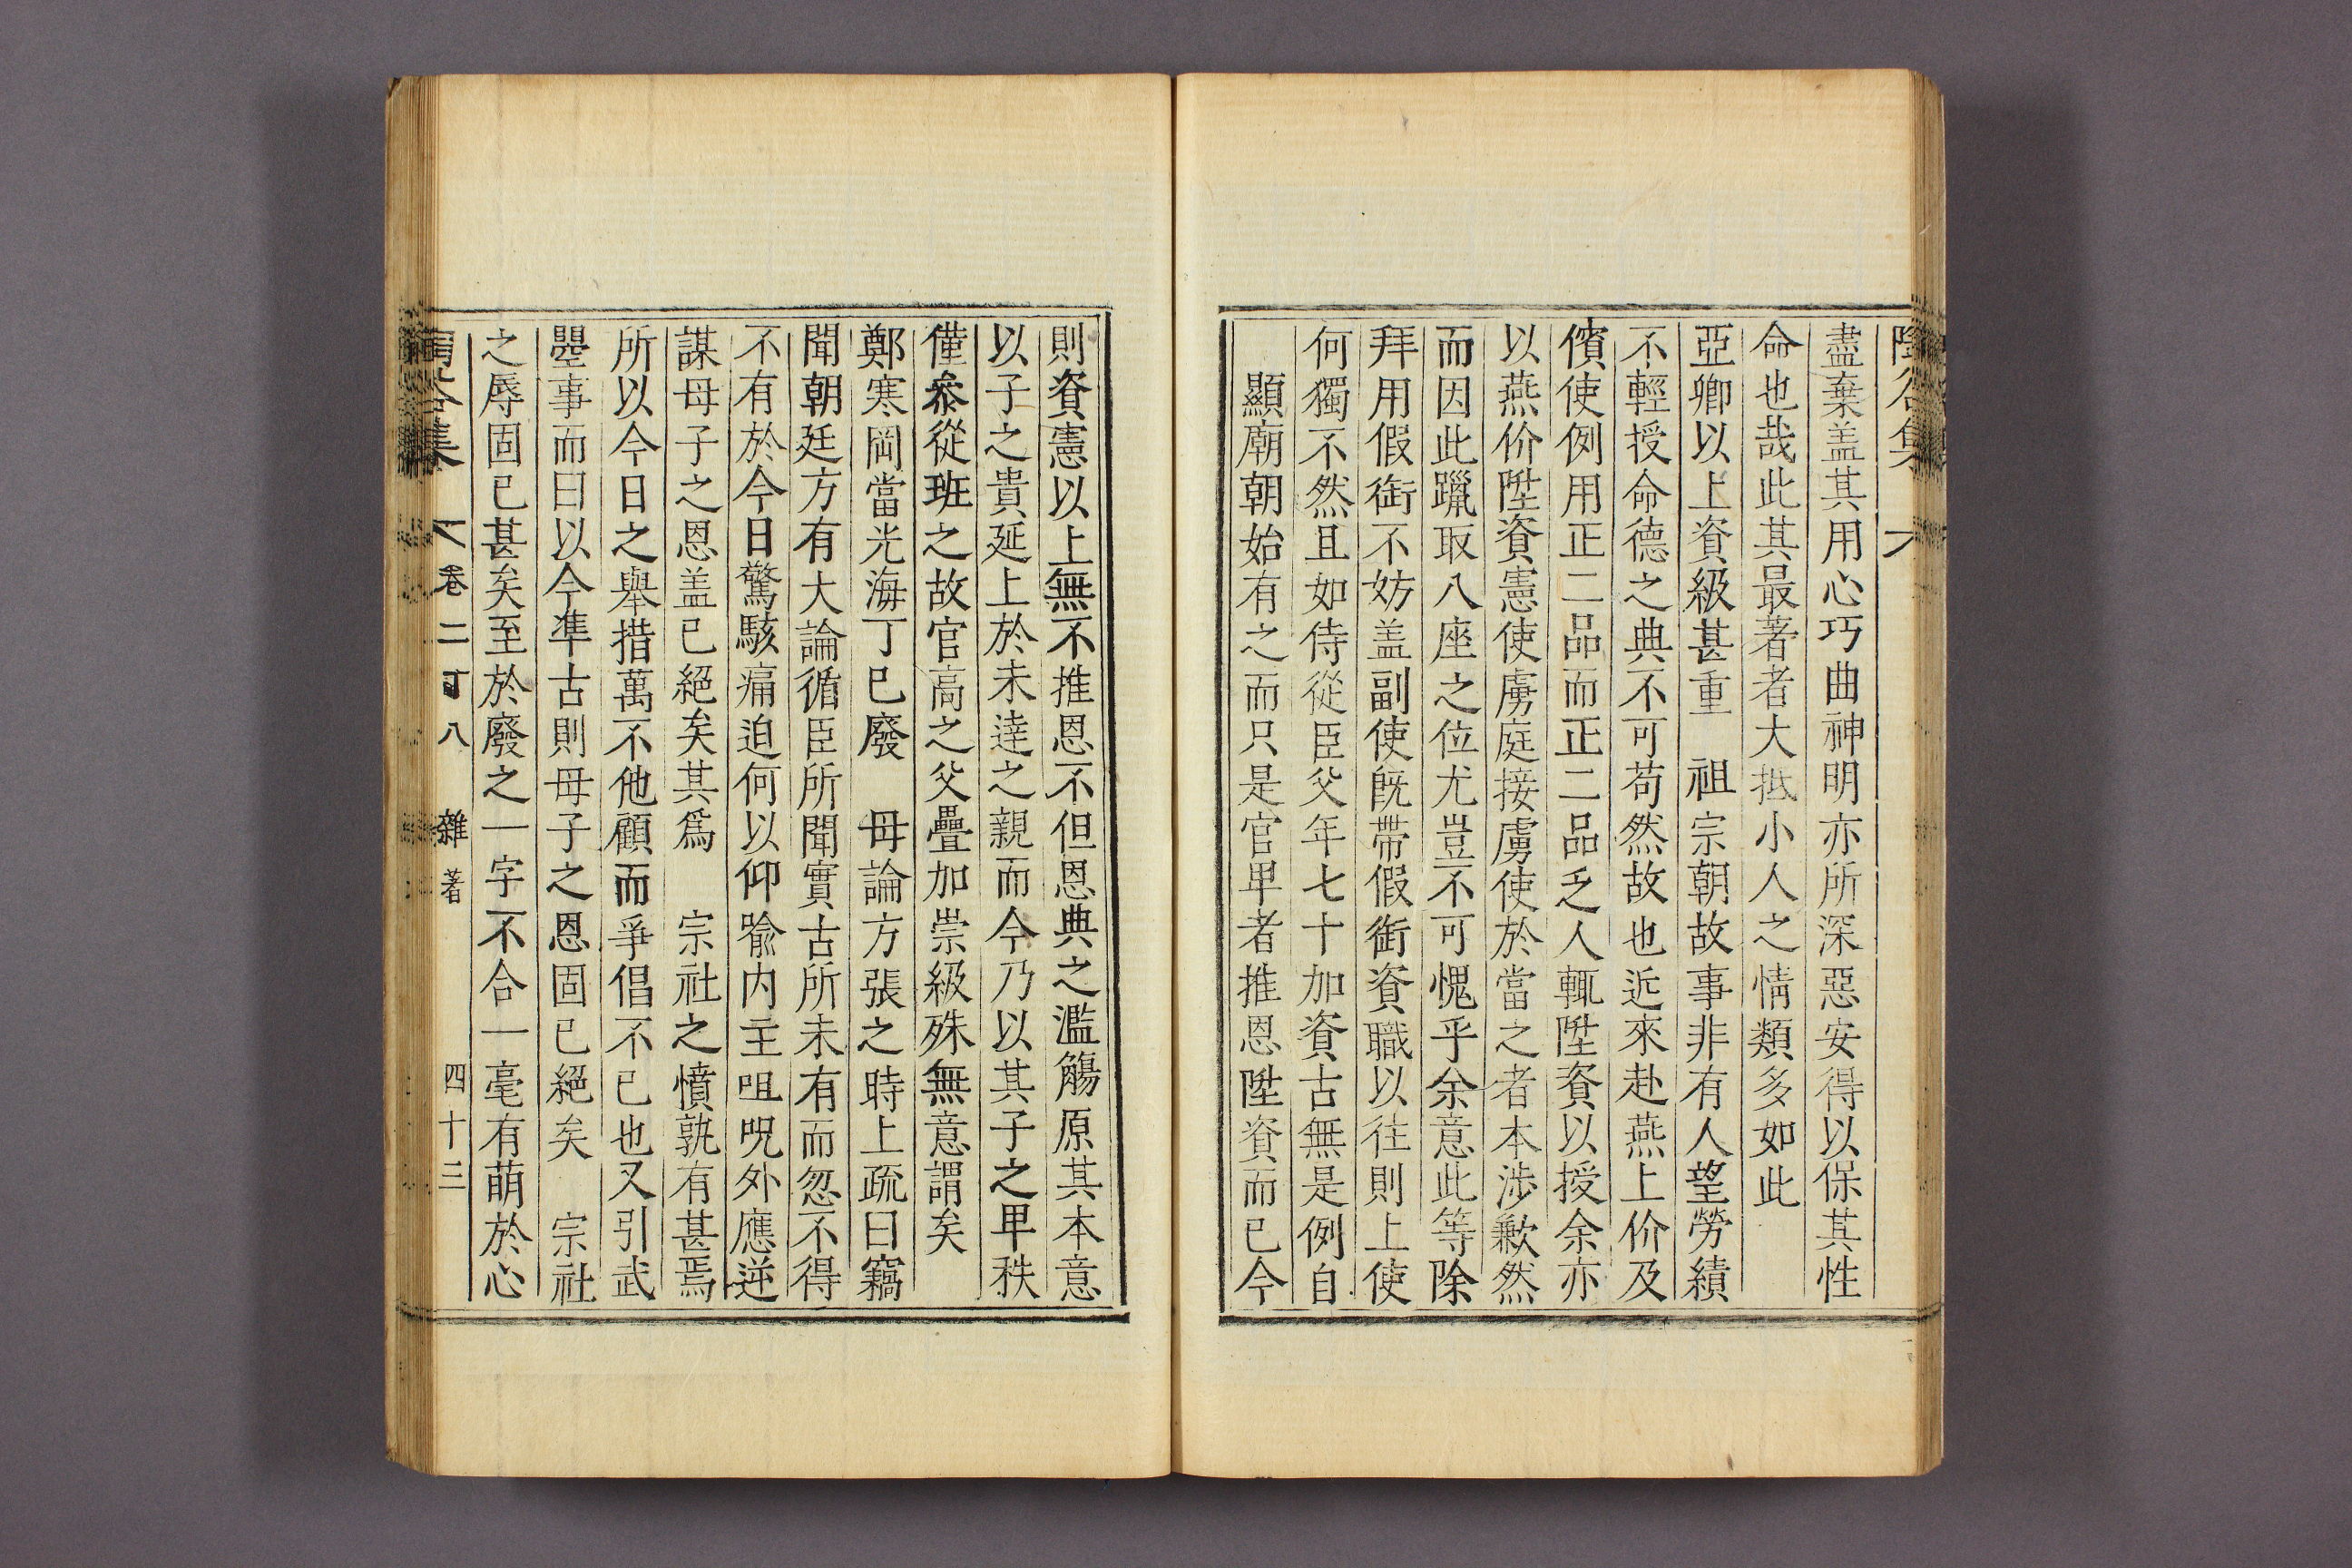 盡棄盖其用心巧曲神明亦所深惡安得以保其性
命也哉此其最著者大抵小人之情類多如此
亞卿以上資級甚重　祖宗朝故事非有人望勞績
不輕授命德之典不可苟然故也近來赴燕上价及
儐使例用正二品而正二品乏人輒陞資以授余亦
以燕价陞資憲使虜庭接虜使於當之者本涉歉然
而因此躐取八座之位尤豈不可愧乎余意此等除
拜用假銜不妨盖副使旣帶假銜資職以往則上使
何獨不然且如侍從臣父年七十加資古無是例自
顯廟朝始有之而只是官卑者推恩陞資而已今
則資憲以上無不推恩不但恩典之濫觴原其本意
以子之貴延上於未達之親而今乃以其子之卑秩
僅叅從班之故官高之父疊加崇級殊無意謂矣
鄭寒岡當光海丁巳廢　母論方張之時上疏曰竊
聞朝廷方有大論循臣所聞實古所未有而忽不得
不有於今日驚駭痛迫何以仰喩內主咀呪外應逆
謀母子之恩盖已絕矣其爲　宗社之憤孰有甚焉
所以今日之擧措萬不他顧而爭倡不已也又引武
曌事而曰以今準古則母子之恩固已絕矣　宗社
之辱固已甚矣至於廢之一字不合一毫有萌於心
卷二丁八　雜著　四十三